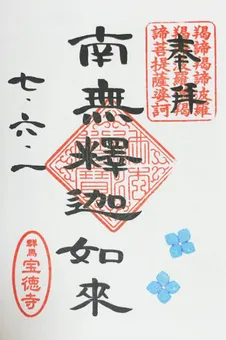 奉拝
羯諦羯諦波羅
羯諦波羅僧羯
諦菩提薩婆訶
南無釋迦如來
七・六・一
群馬
宝徳寺